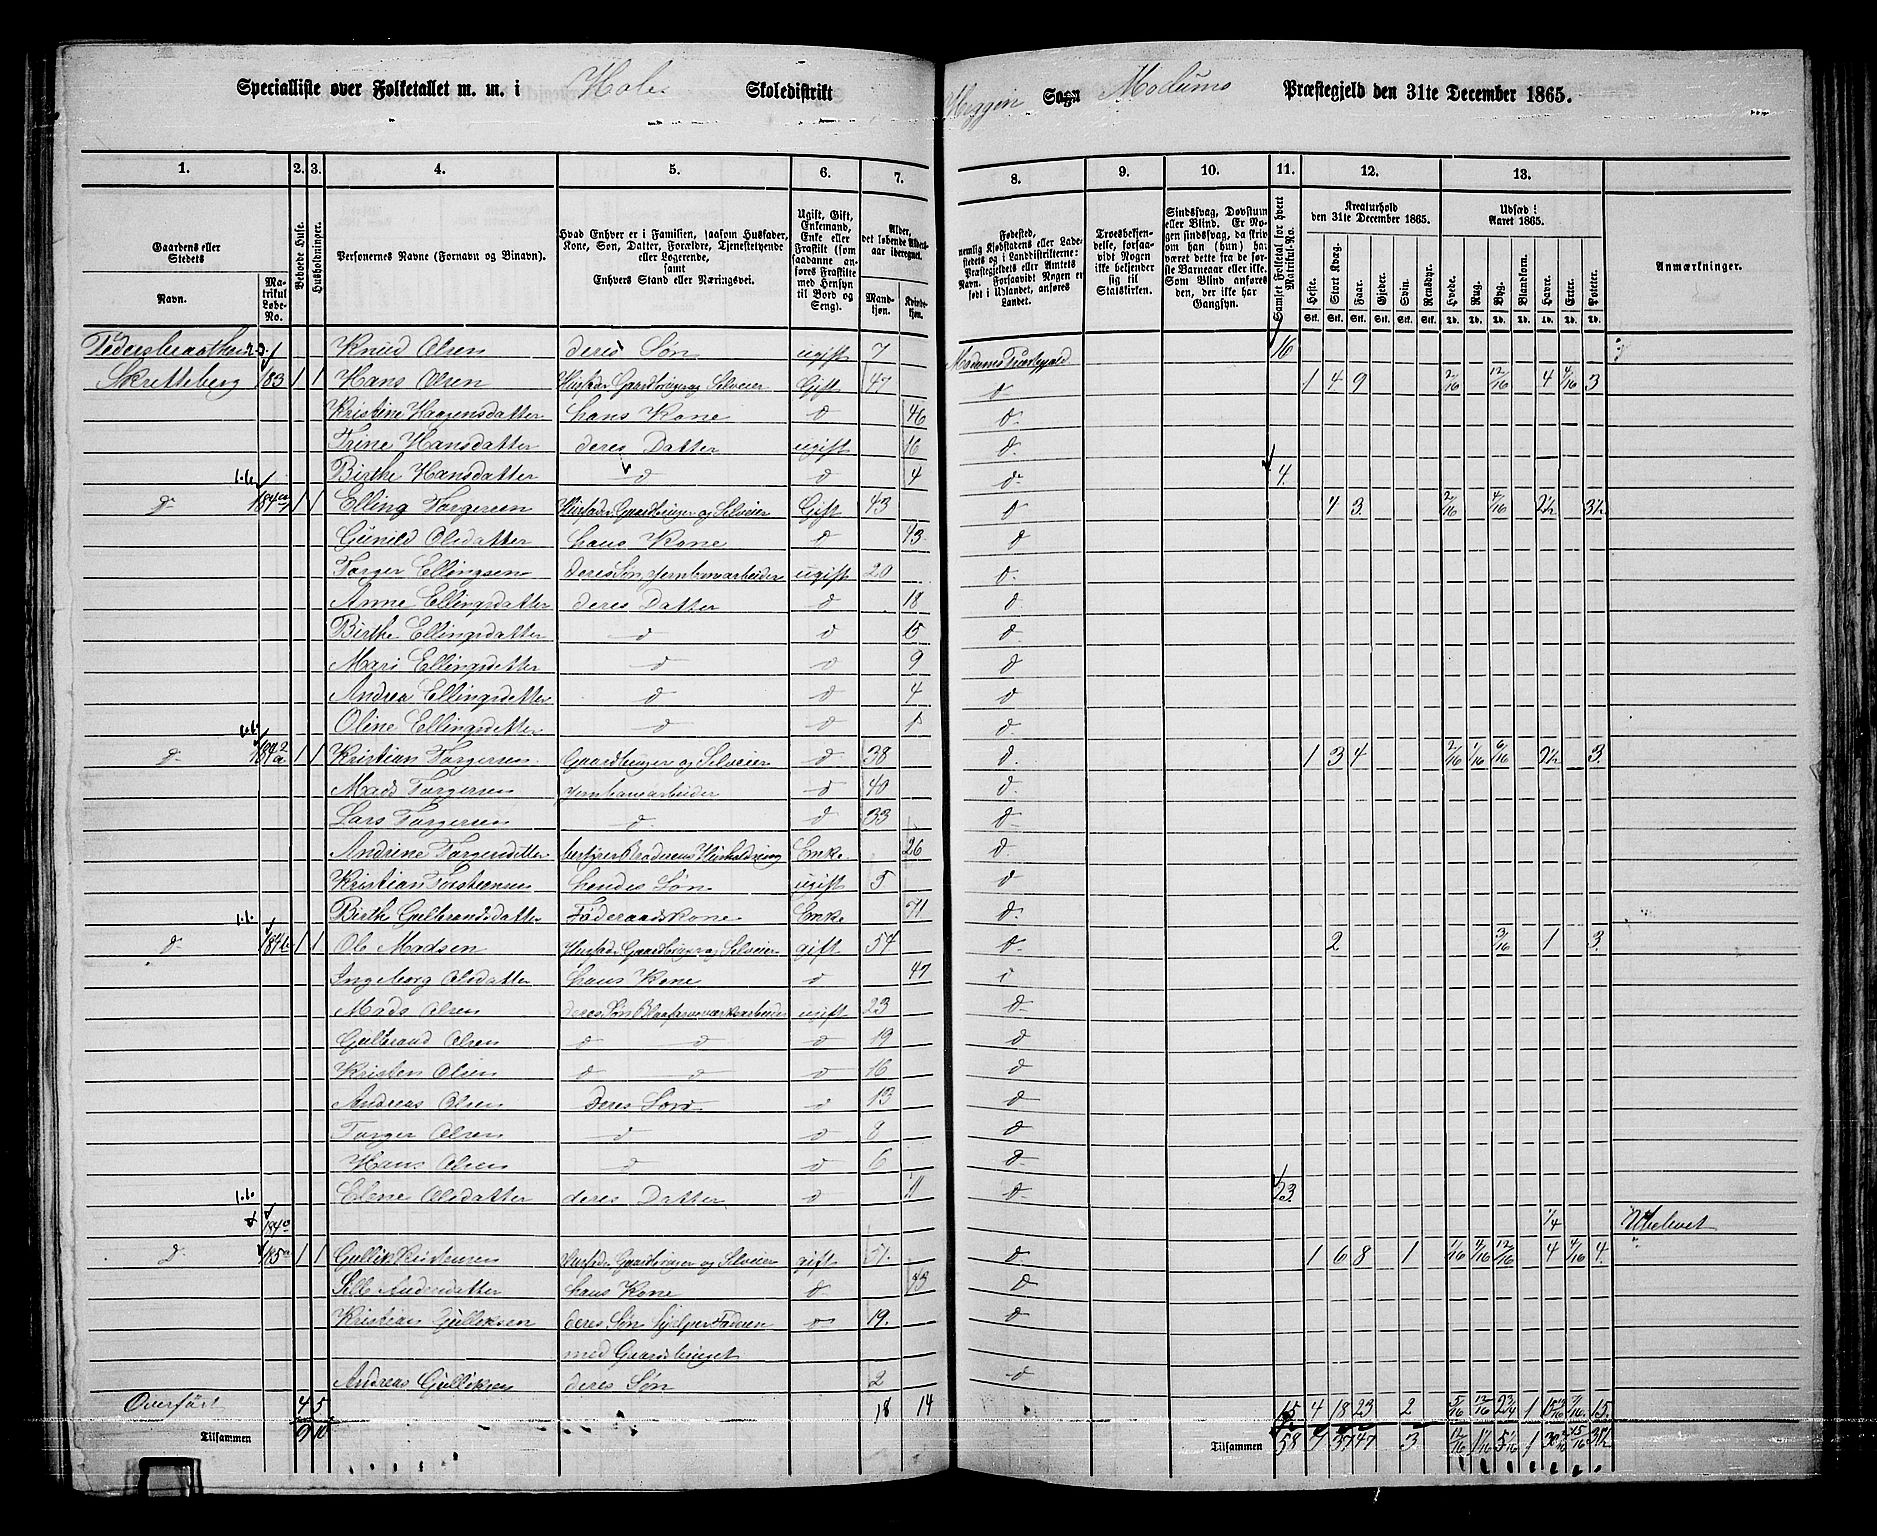 Specialliste over Folketallet m. m. i Holes Skoledistrikt Heggen Sogn Modums Præstegjeld den 31te December 1865.
1. 2. 3. 4. 5. 6. 7. 8. 9. 10. 11. 12. 13.
Gaardens eller Stedets
Navn. Matrikul Løbe-No.
Beboede Huse.
Husholdninger.
Personernes Navne (Fornavn og Binavn).
Hvad Enhver er i Familien, saasom Husfader, Kone, Søn, Datter, Forældre, Tjenestetyende eller Logerende, samt Enhvers Stand eller Næringsvei.
Ugift, Gift, Enkemand, Enke eller Fraskilt (som saadanne anføres Fraskilte med Hensyn til Bord og Seng).
Alder, det løbende Aldersaar iberegnet.
Mandkjøn. Kvindekjøn.
Fødested, nemlig Kjøbstadens eller Ladestedets og i Landdistrikterne: Præstegjeldets eller Amtets Navn. Forsaavidt Nogen er født i Udlandet, anføres Landet.
Troesbekjendelse, forsaavidt Nogen ikke bekjender sig til Statskirken.
Sindssvag, Døvstum eller Blind. Er Nogen sindssvag, da skriv om han (hun) har været dette fra de første Barneaar eller ikke. Som Blind anføres den, der ikke har Gangsyn.
Samlet Folketal for hvert Matrikul-No.
Kreaturhold den 31te December 1865.
Heste. Stort Kvæg. Faar. Gjeder. Svin. Rensdyr.
Stk. Stk. Stk. Stk. Stk. Stk.
Udsæd i Aaret 1865.
Hvede. Rug. Byg. Blandkorn. Havre. Erter. Poteter.
Td. Td. Td. Td. Td. Td. Td.
Anmærkninger.
Knud Olsen deres Søn ugift 7 Modums Præstegjeld 16
Skretteberg 183 1 1 Hans Olsen Husfader Gaardbruger og Selveier Gift 47 d 1 4 9 2/16 12/16 4 4/16 3
Kristine Haagensdatter hans Kone d 46 d
Trine Hansdatter deres Datter ugift 16 d
Birthe Hansdatter d d 4 d 4
d 184 1 1 Elling Torgersen Husfader Gaardbruger og Selveier Gift 43 d 4 3 2/16 4/16 2½ 3½
Gunild Olsdatter hans Kone d 43 d
Torger Ellingsen deres Søn Jernbanearbeider ugift 20 d
Anne Ellingsdatter deres Datter d 18 d
Birthe Ellingsdatter d d 15 d
Mari Ellingsdatter d d 9 d
Andrea Ellingsdatter d d 4 d
Oline Ellingsdatter d d 1 d
d 184 1 1 Kristian Torgersen Gaardbruger og Selveier d 38 d 1 3 4 2/16 1/16 6/16 2½ 3
Mads Torgersen Jernbanearbeider d 40 d
Lars Torgersen d d 33 d
Andrine Torgersdatter bestyrer Broderens Husholdning Enke 26 d
Kristian Torstensen hendes Søn ugift 5 d
Birthe Gulbrandsdatter Føderaadskone Enke 71 d
d 184 b 1 1 Ole Madsen Husfader Gaardbruger og Selveier gift 54 d 2 3/16 1 3
Ingeborg Olsdatter hans Kone d 47 d
Mads Olsen deres Søn Blaafarveværksarbeider ugift 23 d
Gulbrand Olsen d d d 19 d
Kristen Olsen d d d 16 d
Andreas Olsen deres Søn d 13 d
Torger Olsen d d 8 d
Hans Olsen d d 6 d
Elene Olsdatter deres Datter d 11 d 23
184 c 1/4 Ubebvet
d 185 a 1 1 Gullik Kristensen Husfader Gaardbruger og Selveier gift 51 d 1 6 8 1 1/16 4/16 12/16 4 4/16 4
Sille Andersdatter hans Kone d 43 d
Kristian Gulliksen deres Søn hjelper Faderen d 19 d
med Gaardsbruget
Andreas Gulliksen deres Søn 2 d
Overført 4 5 18 14 15 4 18 23 2 5/16 12/16 1 7/16 15
Tilsammen 9 10 Tilsammen 58 7 37 47 3 12/16 1 15/16